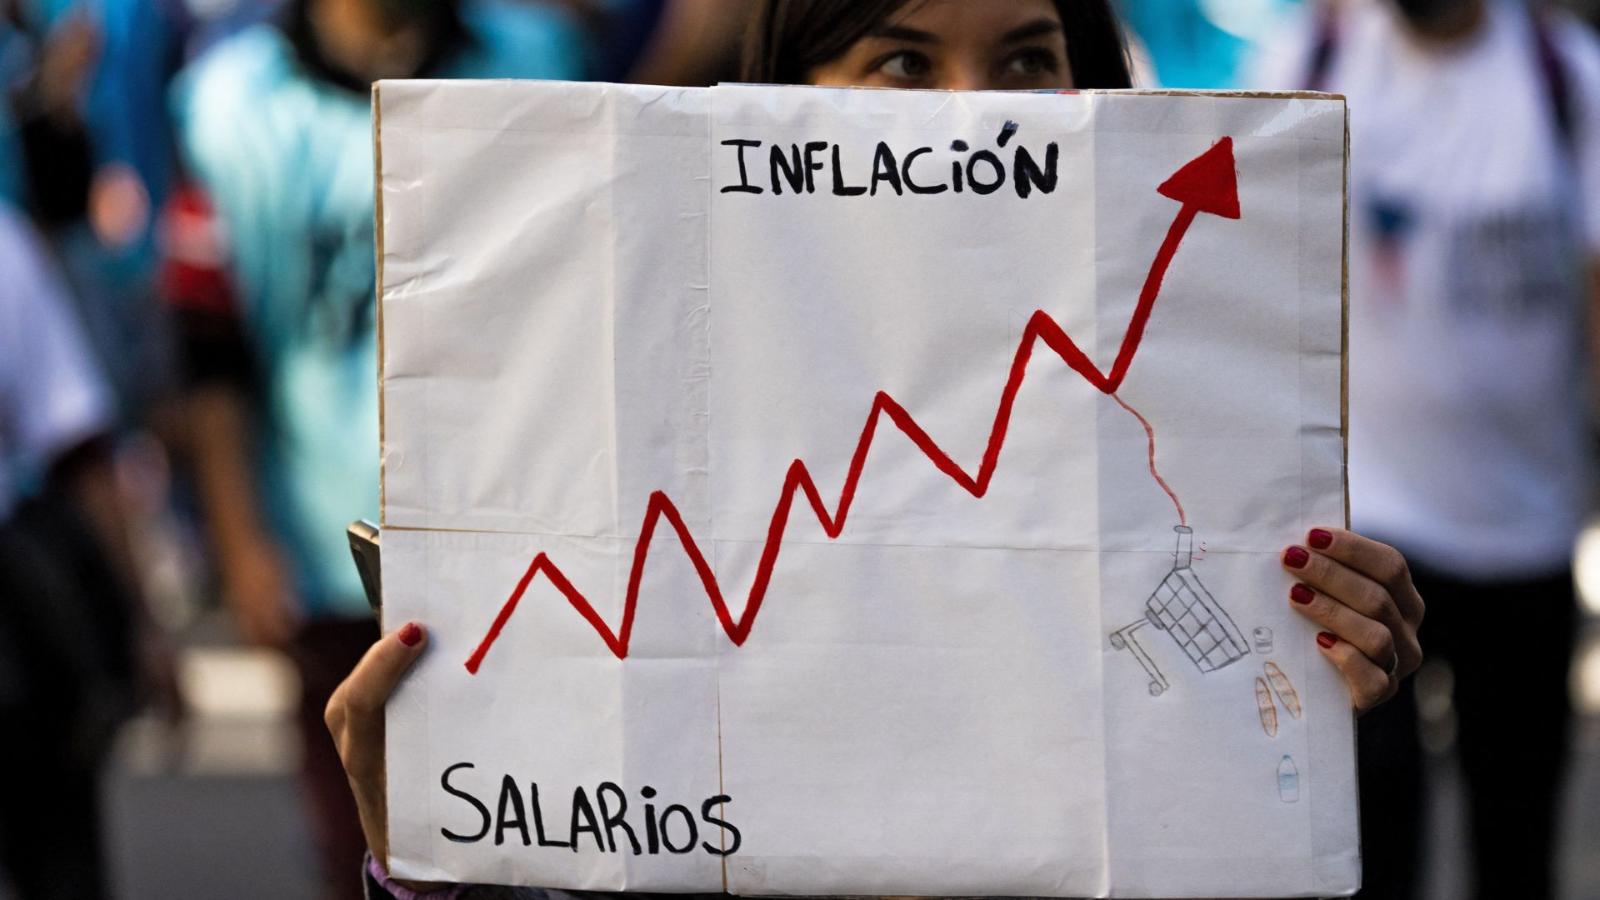 INFLACIÓN
SALARIOS